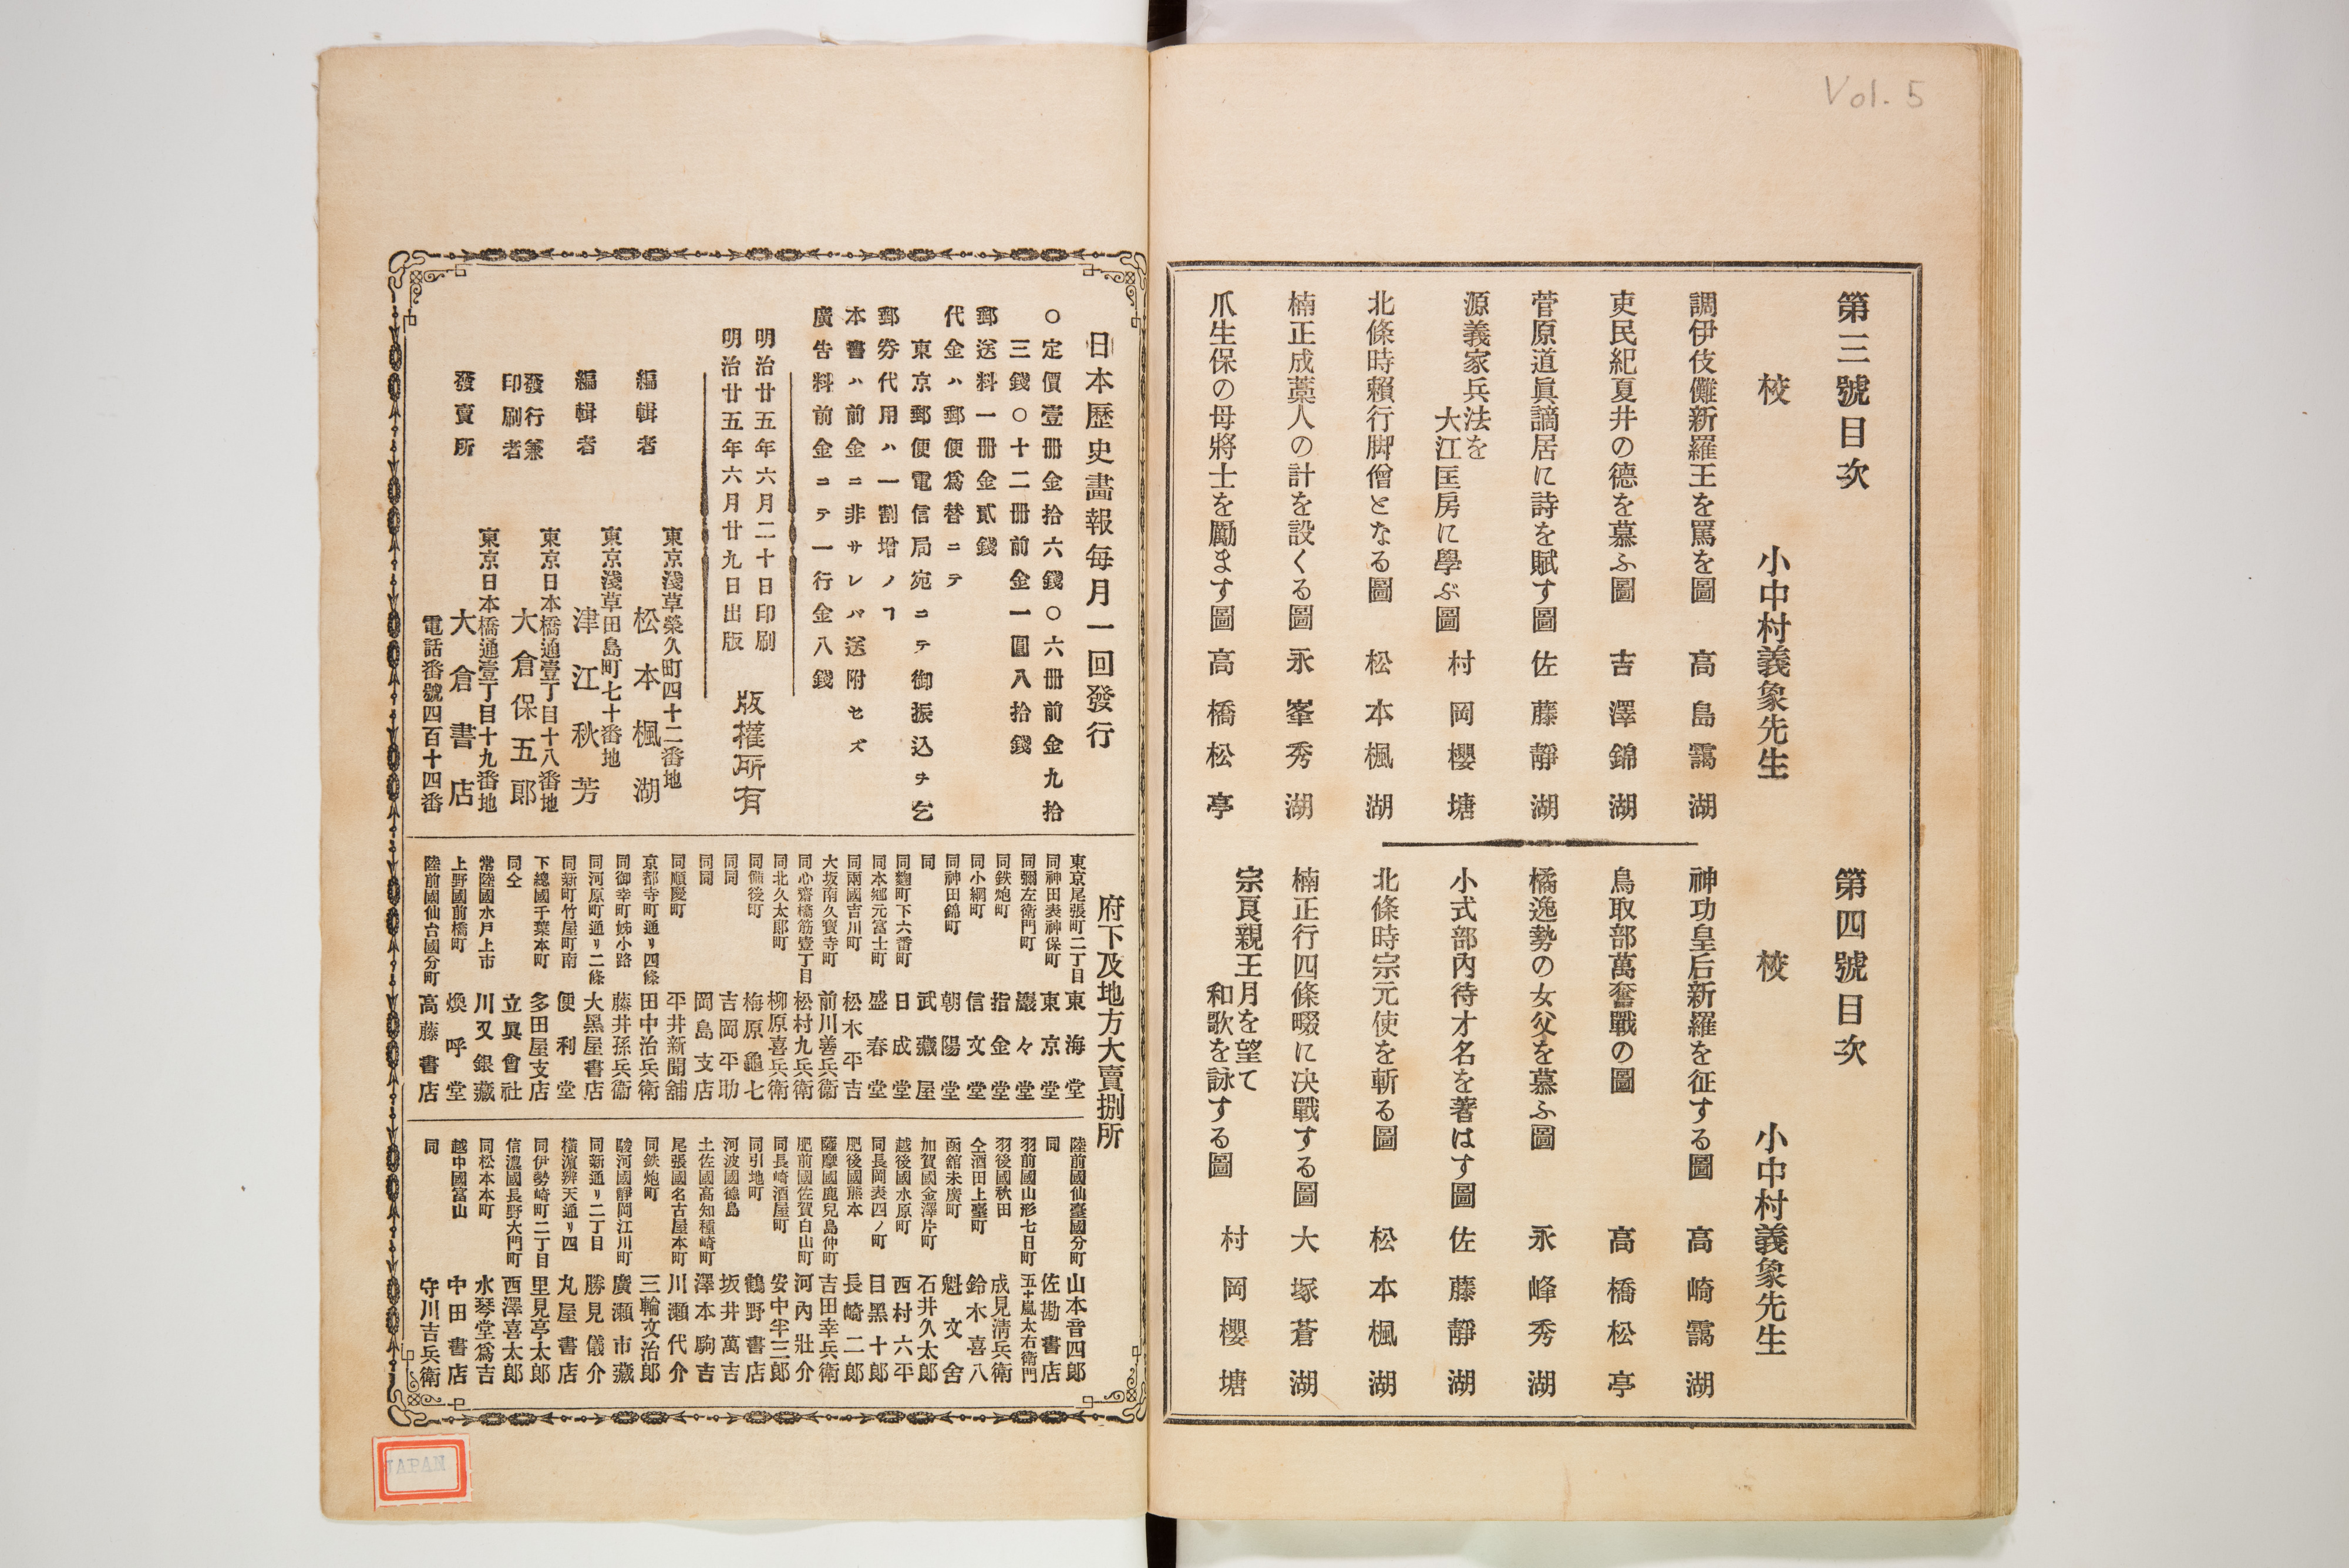 Vol. 5
第三號目次
校 小中村義象先生
調伊伎儺新羅王を罵を圖 高島靄湖
吏民紀夏井の德を慕ふ圖 吉澤錦湖
菅原道眞謫居に詩を賦す圖 佐藤靜湖
源義家兵法を
大江匡房に學ぶ圖 村岡櫻塘
北條時賴行脚僧となる圖 松本楓湖
楠正成藁人の計を設くる圖 永峯秀湖
爪生保の母將士を勵ます圖 高橋松亭
第四號目次
校 小中村義象先生
神功皇后新羅を征する圖 高崎靄湖
鳥取部萬奮戰の圖 高橋松亭
橘逸勢の女父を慕ふ圖 永峰秀湖
小式部內待才名を著はす圖 佐藤靜湖
北條時宗元使を斬る圖 松本楓湖
楠正行四條畷に决戰する圖 大塚蒼湖
宗良親王月を望て
和歌を詠する圖 村岡櫻塘
日本歷史畵報每月一回發行
○定價壹冊金拾六錢○六冊前金九拾
三錢○十二冊前金一圓八拾錢
郵送料一冊金貳錢
代金ハ郵便爲替ニテ
東京郵便電信局宛ニテ御振込ヲ乞
郵券代用ハ一割增ノヿ
本書ハ前金ニ非サレバ送附セズ
廣告料前金ニテ一行金八錢
明治廿五年六月二十日印刷
明治廿五年六月廿九日出版
版權所有
東京淺草榮久町四十二番地
編輯者 松本楓湖
東京淺草田島町七十番地
編輯者 津江秋芳
東京日本橋通壹丁目十八番地
發行兼
印刷者 大倉保五郎
東京日本橋通壹丁目十九番地
發賣所 大倉書店
電話番號四百十四番
府下及地方大賣捌所
東京尾張町二丁目 東海堂
同神田表神保町 東京堂
同彌左衛門町 巖々堂
同鉄炮町 指金堂
同小網町 信文堂
同神田錦町 朝陽堂
同 武藏屋
同麴町下六番町 日成堂
同本鄉元富士町 盛春堂
同兩國吉川町 松木平吉
大坂南久寶寺町 前川善兵衞
同心齋橋筋壹丁目 松村九兵衞
同北久太郎町 柳原喜兵衞
同備後町 梅原龜七
同同 吉岡平助
同同 岡島支店
同順慶町 平井新聞舖
京都寺町通リ四條 田中治兵衞
同御幸町姊小路 藤井孫兵衞
同河原町通リ二條 大黑屋書店
同新町竹屋町南 便利堂
下總國千葉本町 多田屋支店
同仝 立眞會社
常陸國水戸上市 川又銀藏
上野國前橋町 煥呼堂
陸前國仙台國分町 高藤書店
陸前國仙臺國分町 山本音四郎
同 佐勘書店
羽前國山形七日町 五十嵐太右衛門
羽後國秋田 成見淸兵衞
仝酒田上臺町 鈴木喜八
函館末廣町 魁文舍
加賀國金澤片町 石井久太郎
越後國水原町 西村六平
同長岡表四ノ町 目黑十郎
肥後國熊本 長崎二郎
薩摩國鹿兒島仲町 吉田幸兵衛
肥前國佐賀白山町 河內壯介
同長崎酒屋町 安中半三郎
同引地町 鶴野書店
河波國德島 坂井萬吉
土佐國高知種崎町 澤本駒吉
尾張國名古屋本町 川瀨代介
同鉄炮町 三輪文治郎
駿河國靜岡江川町 廣瀨市藏
同新通リ二丁目 勝見儀介
橫濱辨天通リ四 丸屋書店
同伊勢崎町二丁目 里見亭太郎
信濃國長野大門町 西澤喜太郎
同松本本町 水琴堂爲吉
越中國富山 中田書店
同 守川吉兵衛
JAPAN